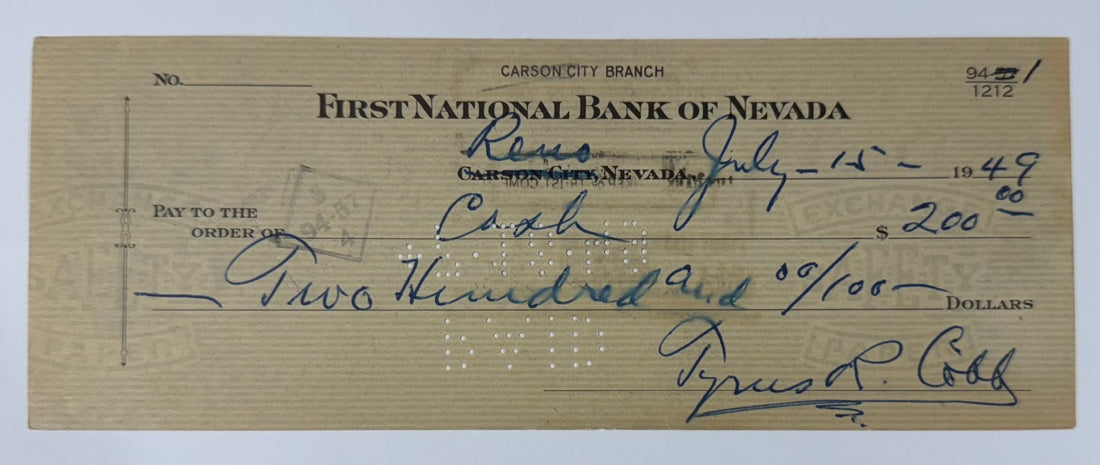 CARSON CITY BRANCH
No.
94-1
1212
FIRST NATIONAL BANK OF NEVADA
Reno July-15-1949
CARSON CITY, NEVADA,
PAY TO THE
ORDER OF Cash $ 200 00
94-87
4
Two Hundred and 00/100 DOLLARS
Tyrus R. Cobb